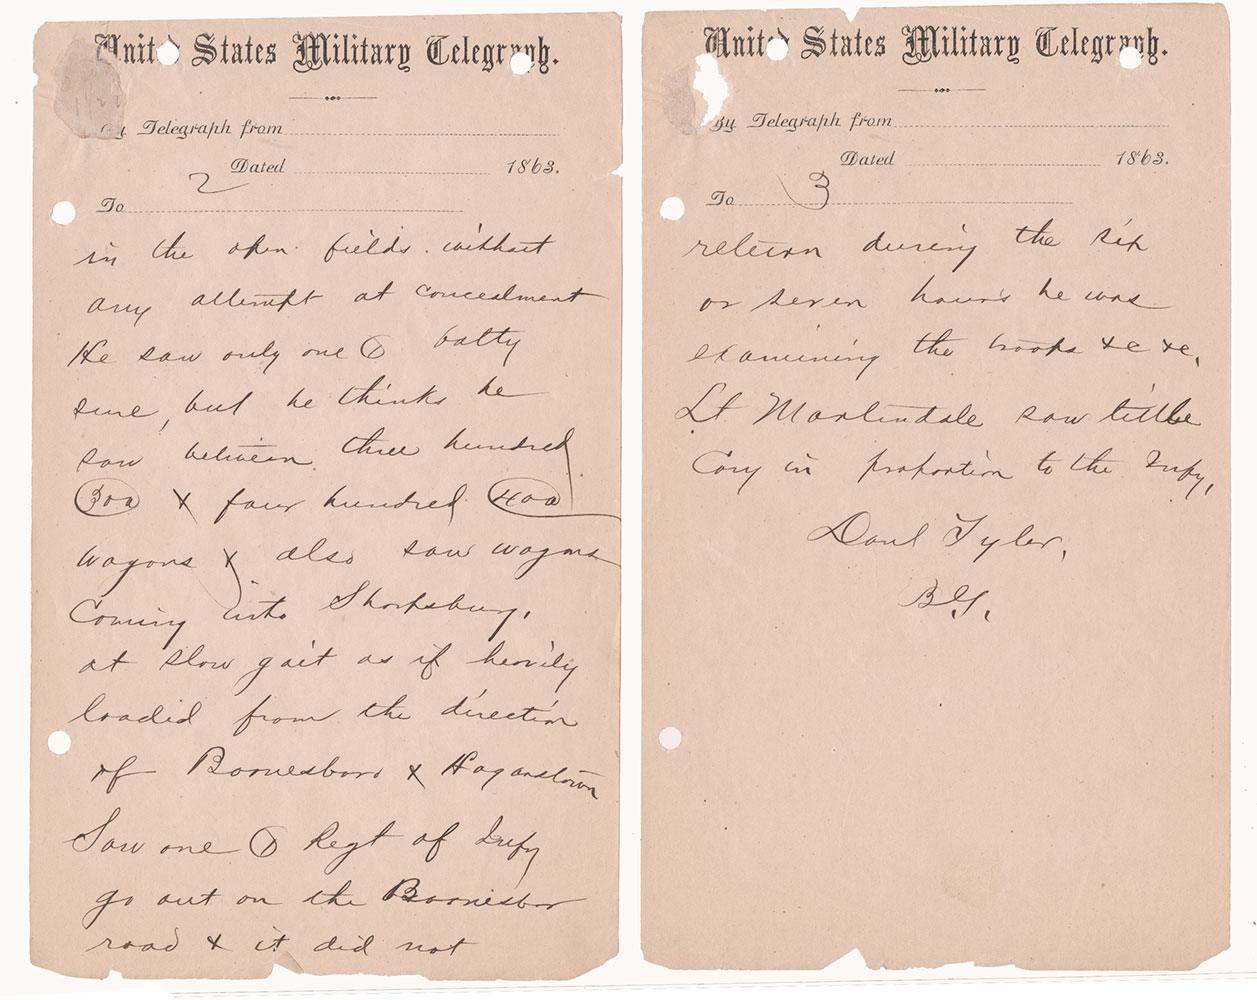 United States Military Telegraph.
By Telegraph from
Dated 1863.
2
To
in the open fields. without
any attempt at concealment
He saw only one ① batty
sure, but he thinks he
saw between three hundred
(300) & four hundred (400)
wagons & also saw wagons
Coming into Sharpsburg,
at slow gait as if heavily
loaded from the direction
of Boonesboro & Hagarstown
Saw one ① Regt of Infy
go out on the Boonesboro
road & it did not
United States Military Telegraph.
By Telegraph from
Dated 1863.
3
To
return during the six
or seven hours he was
examining the troops &c &c,
Lt Martindale saw little
Cavy in proportion to the Infy,
Danl Tyler,
B.G.